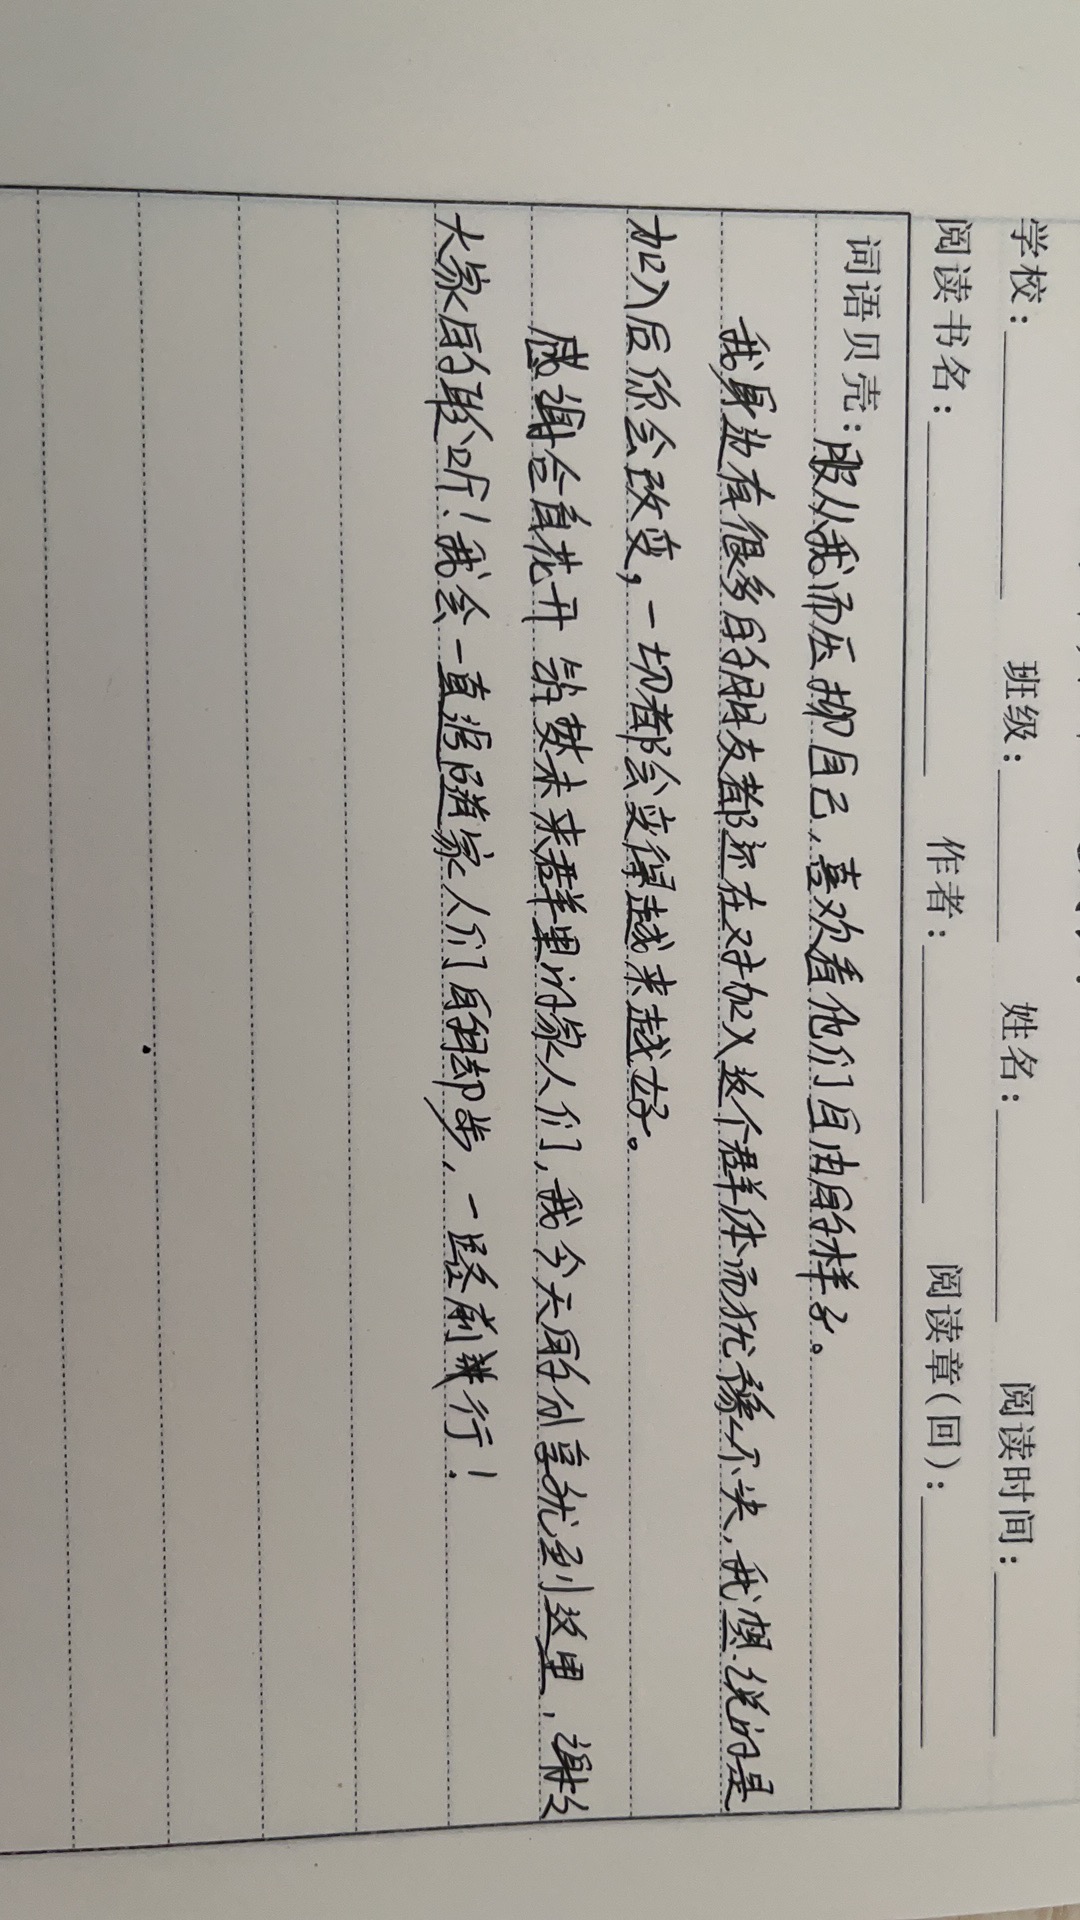 学校： 班级： 姓名： 阅读时间：
阅读书名： 作者： 阅读章(回)：
词语贝壳：
服从我而压抑自己，喜欢看他们自由的样子。
我身边有很多的朋友都还在对加入这个群体而犹豫不决，我想说的是
加入后你会改变，一切都会变得越来越好。
感谢含苞花开 筑梦未来群里的家人们，我今天的分享就到这里，谢谢
大家的聆听！我会一直追随家人们的脚步，一路前行！